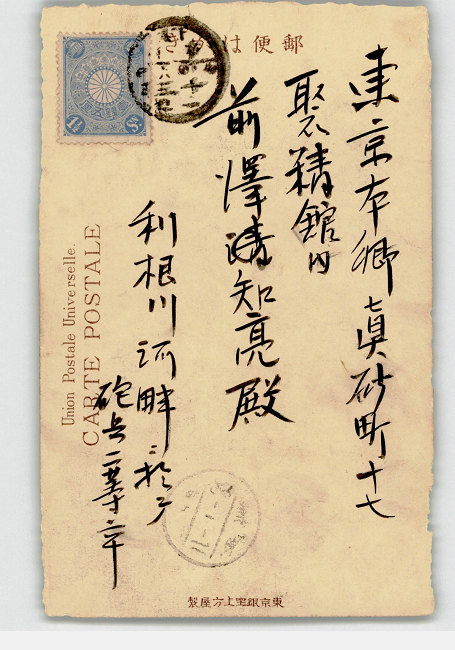 郵便はかき
東京本郷真砂町十七
聚精館内
前澤清知亮殿
利根川河畔ニ於テ
砲兵一等卒
Union Postale Universelle.
CARTE POSTALE
東京銀座上方屋製